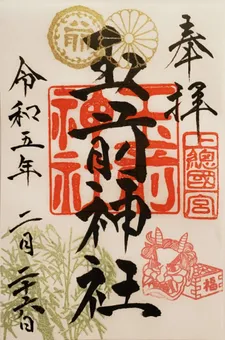 奉拝
上總國一宮
玉前神社
玉前神社
前
福
令和五年
二月二十六日